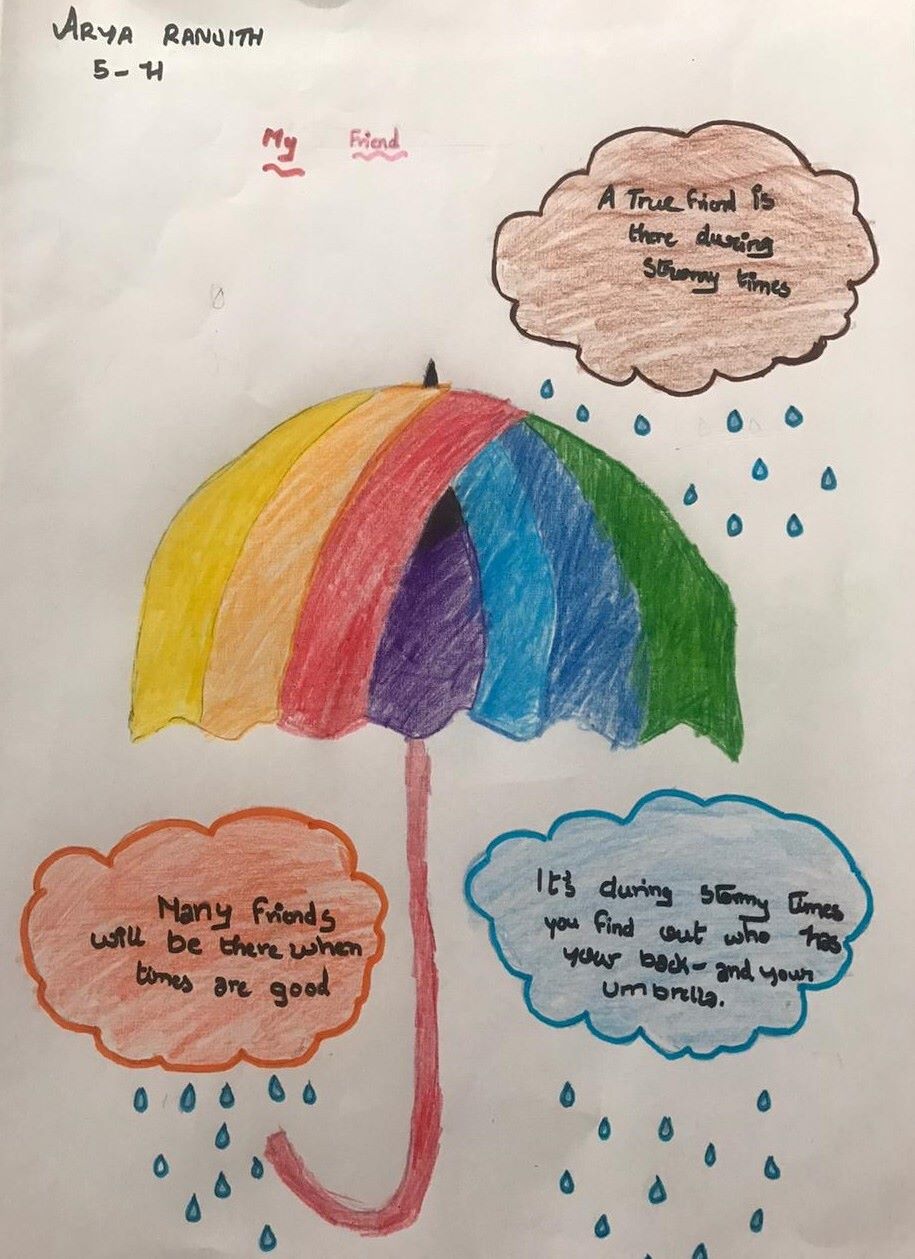 ARYA RANJITH
5-H
My Friend
A True friend is
there during
stromy times
Many friends
will be there when
times are good
It's during stormy times
you find out who has
your back- and your
umbrella.